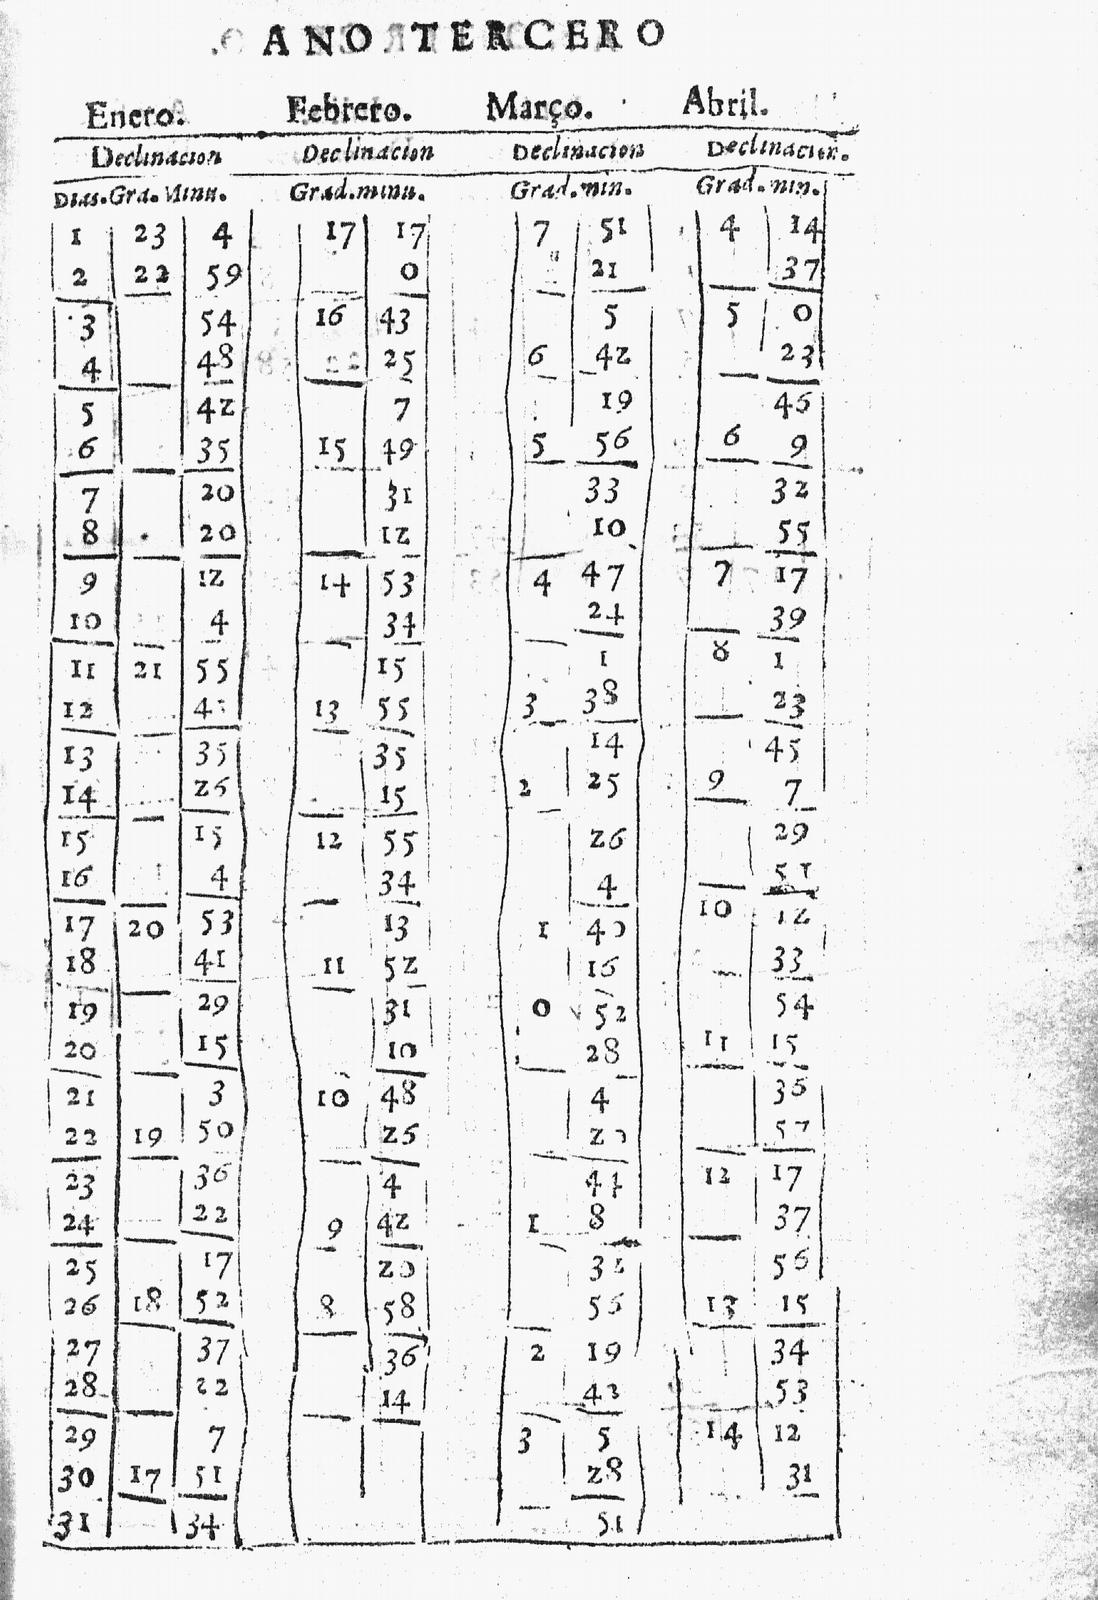 ANO TERCERO
Enero. Febrero. Março. Abril.
Declinacion Declinacion Declinacion Declinacion.
Dias. Gra. Minu. Grad. minu. Grad. min. Grad. min.
1 23 4 17 17 7 51 4 14
2 22 59 0 21 37
3 54 16 43 5 5 0
4 48 25 6 42 23
5 42 7 19 46
6 35 15 49 5 56 6 9
7 20 31 33 32
8 20 12 10 55
9 12 14 53 4 47 7 17
10 4 34 24 39
11 21 55 15 1 8 1
12 13 55 3 38 23
13 35 35 14 45
14 26 15 2 25 9 7
15 15 12 55 26 29
16 4 34 4 51
17 20 53 13 1 40 10 12
18 41 11 52 16 33
19 29 31 0 52 54
20 15 10 28 11 15
21 3 10 48 4 36
22 19 50 26 20 57
23 36 4 44 12 17
24 22 9 42 1 8 37
25 17 20 32 56
26 18 52 8 58 56 13 15
27 37 36 2 19 34
28 22 14 42 53
29 7 3 5 14 12
30 17 51 28 31
31 34 51